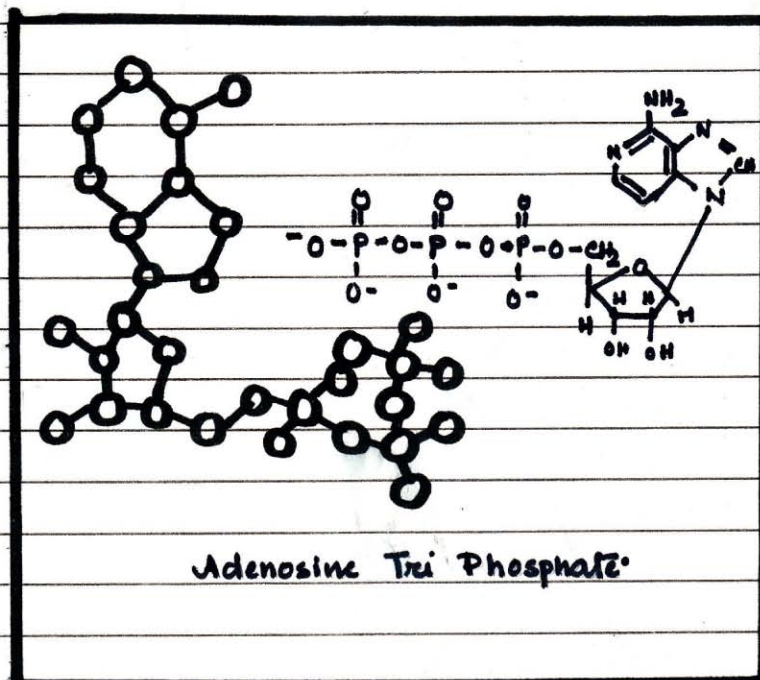 NH2
N N
CH
N
O O O
-O-P-O-P-O-P-O-CH2
O- O- O-
O
H H H H
OH OH
Adenosine Tri Phosphate.